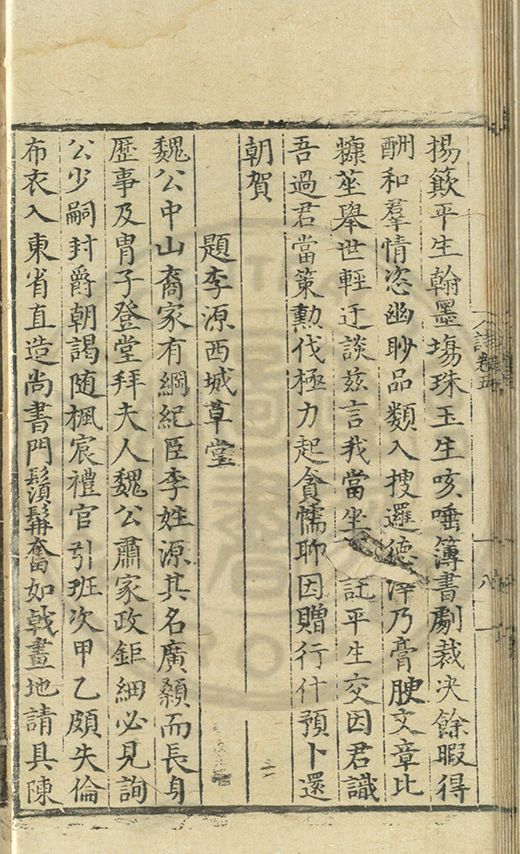 揚簸平生翰墨塲珠玉生咳唾簿書劇裁决餘暇得
酬和羣情恣幽眇品類入搜邏德澤乃膏腴文章比
糠莝舉世輕迂談兹言我當坐託平生交因君識
吾過君當策勲伐極力起貪懦聊因贈行什預卜還
朝賀
題李源西城草堂
魏公中山裔家有綱紀臣李姓源其名廣顙而長身
歷事及胄子登堂拜夫人魏公肅家政鉅細必見詢
公少嗣封爵朝謁随楓宸禮官引班次甲乙頗失倫
布衣入東省直造尚書門鬚髯奮如戟畫地請具陳